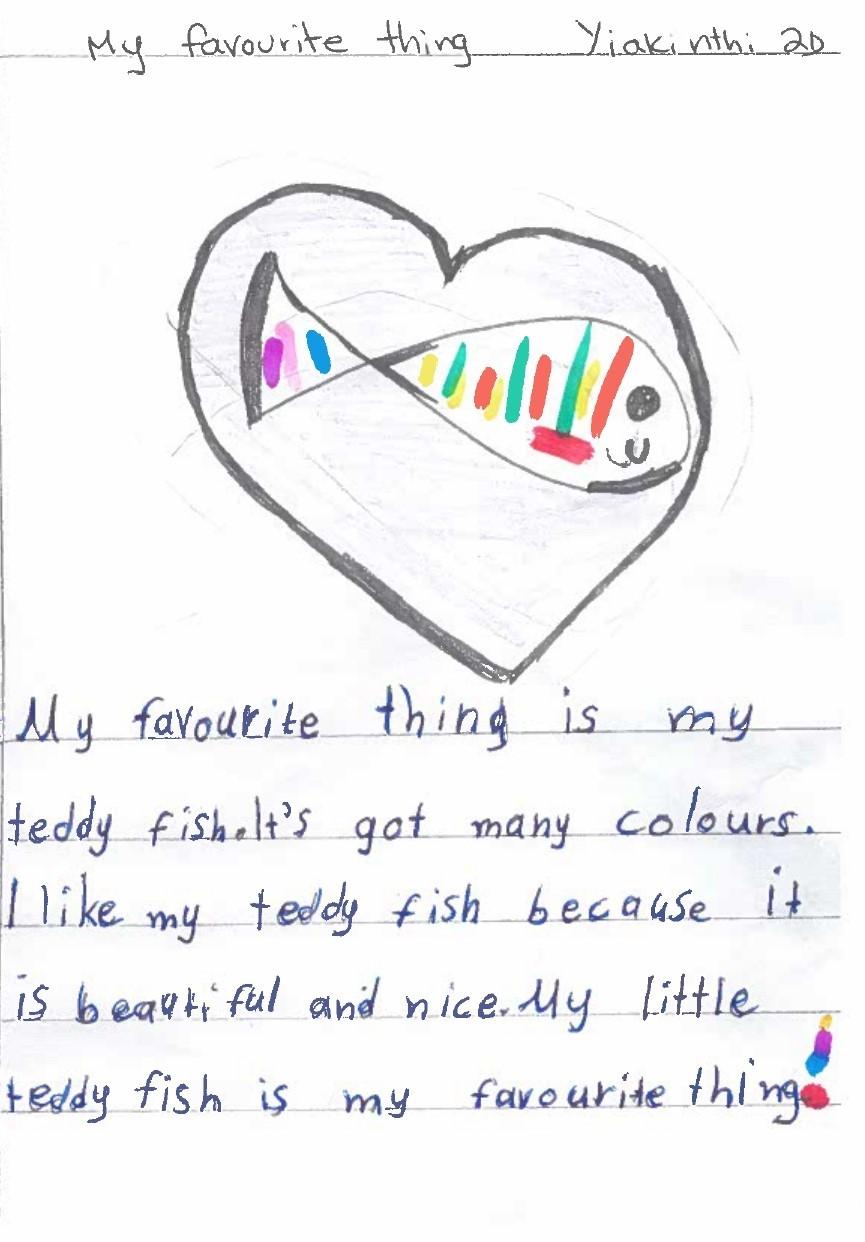 My favourite thing Yiakinthi 2D
My favourite thing is my
teddy fish. It's got many colours.
I like my teddy fish because it
is beautiful and nice. My little
teddy fish is my favourite thing!